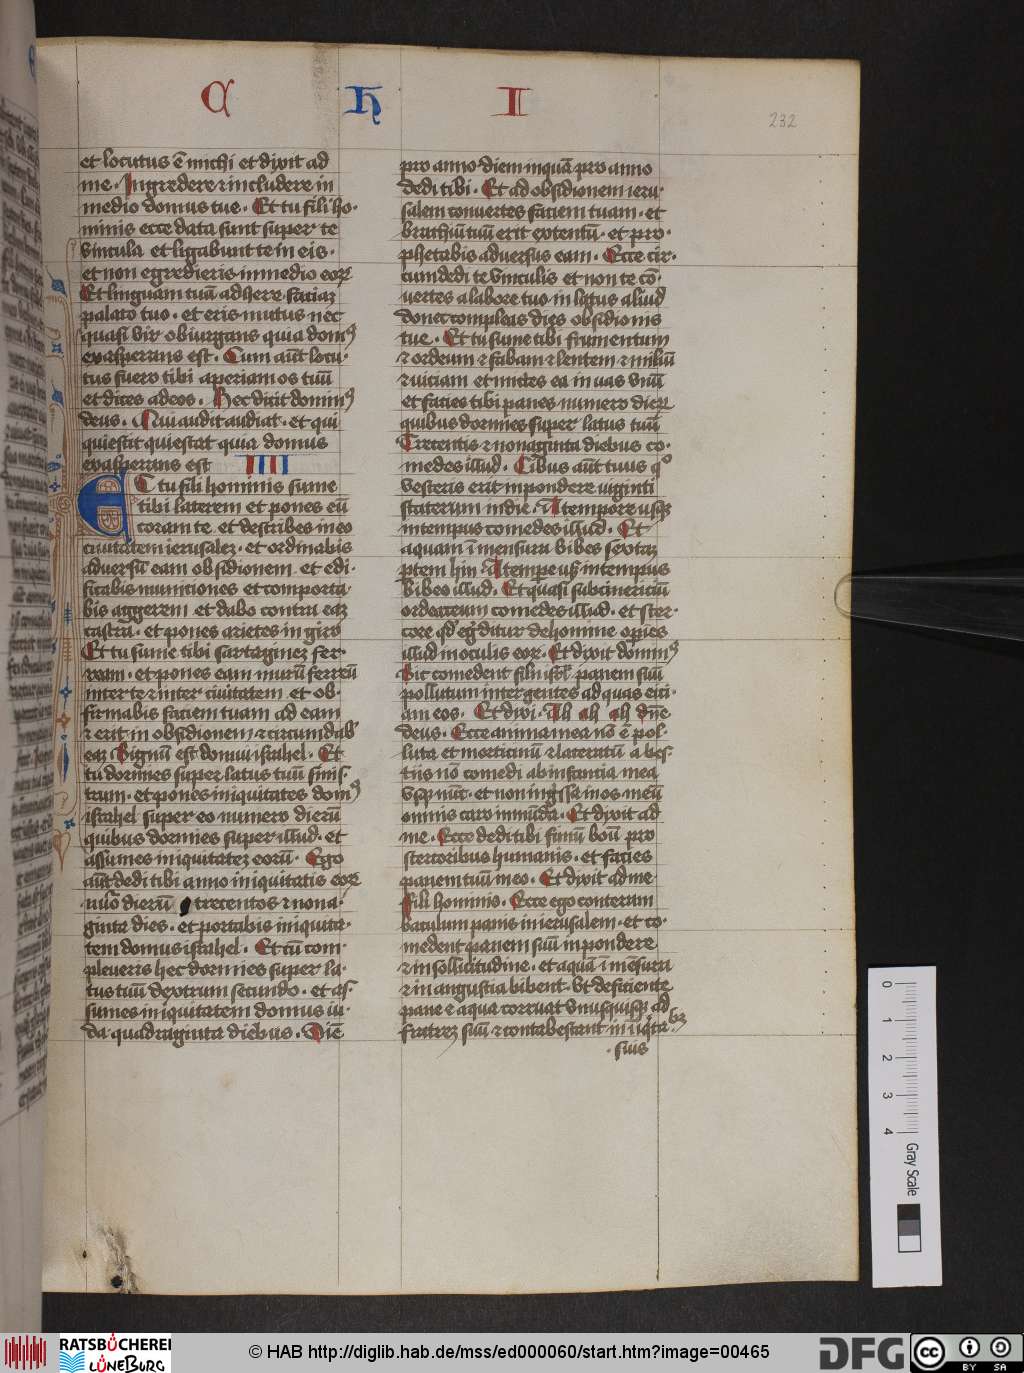 C h I
232
et locutus ē michi et dixit ad
me · Ingredere ⁊ includere in
medio domus tue · Et tu fili ho·
minis ecce data sunt super te
vincula et ligabunt te in eis ·
et non egredieris in medio eoꝝ
Et linguam tuā adherere faciaꝫ
palato tuo · et eris mutus nec
quasi vir obiurgans quia domꝰ
exasperans est · Cum aūt locu·
tus fuero tibi aperiam os tuū
et dices ad eos · Hec dicit dominꝰ
deus · Qui audit audiat · et qui
quiescit quiescat quia domus
exasperans est IIII
ET tu fili hominis sume
tibi laterem et pones eū
coram te et describes in eo
ciuitatem ierusalez · et ordinabis
aduersū eam obsidionem et edi·
ficabis municiones et comporta·
bis aggerem et dabo contra eaꝫ
castra · et pones arietes in giro
Et tu sume tibi sartaginez fer·
ream · et pones eam murū ferreū
inter te ⁊ inter ciuitatem et ob·
firmabis faciem tuam ad eam
⁊ erit in obsidionem ⁊ circumdab̄
eaꝫ Signū est domui israhel · Et
tu dormies super latus tuū sinis·
trum · et pones iniquitates domꝰ
israhel super eo numero dierū
quibus dormies super illud · et
assumes iniquitatez eorū · Ego
aūt dedi tibi anno iniquitatis eoꝝ
nūo dierū trecentos ⁊ nona·
ginta dies · et portabis iniquita·
tem domus israhel · Et cū com·
pleueris hec dormies super la·
tus tuū dextrum secundo · et as·
sumes iniquitatem domus iu·
da quadraginta diebus · Diē
pro anno diem inquā pro anno
dedi tibi · Et ad obsidionem ieru·
salem conuertes faciem tuam · et
brachiū tuū erit extentū · et pro·
phetabis aduersus eam · Ecce cir·
cumdedi te vinculis et non te cō·
uertes a latere tuo in latus aliud
donec compleas dies obsidionis
tue · Et tu sume tibi frumentum
⁊ ordeum ⁊ fabam ⁊ lentem ⁊ miliū
⁊ viciam et mittes ea in uas vnū
et facies tibi panes numero dieꝝ
quibus dormies super latus tuū
Trecentis ⁊ nonaginta diebus co·
medes illud · Cibus aūt tuus qͦ
vesceris erit in pondere viginti
stateras in die · A tempore usqꝫ
in tempus comedes illud · Et
aquam ī mensura bibes sextaꝫ
ptem hin · A tempe usqꝫ in tempus
bibes illud · Et quasi subcinericiū
ordeaceum comedes illud · et ster·
core qd egditur de homine opies
illud in oculis eoꝝ · Et dixit dominꝰ
Sic comedent filii isrl panem suū
pollutum inter gentes ad quas eici·
am eos · Et dixi · Ah ah ah dn̄e
deus · Ecce anima mea nō ē pol·
luta et morticinū ⁊ laceratū a bes·
tiis nō comedi ab infantia mea
vsqꝫ nūc · et non ingssa in os meū
omnis caro inmūda · Et dixit ad
me · Ecce dedi tibi fimū boū pro
stercoribus humanis · et facies
panem tuū in eo · Et dixit ad me
Fili hominis · Ecce ego conteram
baculum panis in ierusalem · et co·
medent panem suū in pondere
⁊ in sollicitudine · et aquā ī mesura
⁊ in angustia bibent · Vt deficiente
pane ⁊ aqua corruat vnusquisqꝫ ad
fratreꝫ suū ⁊ contabescant in īiqtabꝫ
· suis
0 1 2 3 4 Gray Scale
RATSBÜCHEREI LÜNEBURG
© HAB http://diglib.hab.de/mss/ed000060/start.htm?image=00465
DFG
cc BY SA